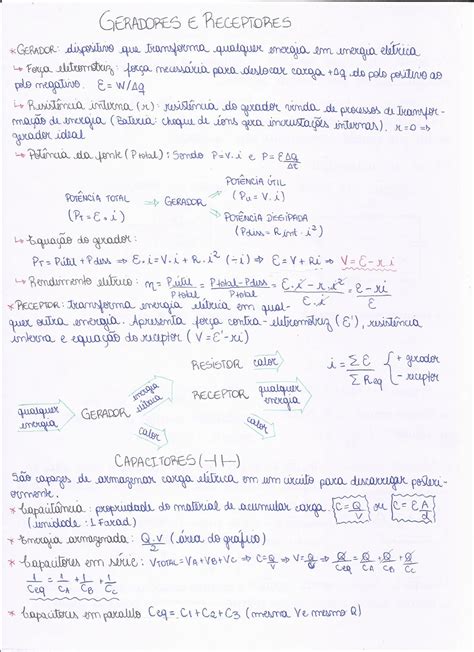 GERADORES E RECEPTORES
* GERADOR: dispositivo que transforma qualquer energia em energia elétrica
↳ Força eletromotriz: força necessária para deslocar carga +Δq do polo positivo ao
polo negativo. E = W/Δq
↳ Resistência interna (r): resistência do gerador vinda de processos de transfor-
mação de energia (Bateria: choque de íons gera incrustações internas). r=0 ⇒
gerador ideal
↳ Potência da fonte (P total): Sendo P=V.i e P = E Δq/Δt
POTÊNCIA TOTAL
(PT = E.i)
⇒ GERADOR
POTÊNCIA ÚTIL
(Pu = V.i)
POTÊNCIA DISSIPADA
(Pdiss = Rint. i²)
↳ Equação do gerador:
PT = Pútil + Pdiss ⇒ E.i = V.i + R.i² (÷i) ⇒ E = V + Ri ⇒ V = E - ri
↳ Rendimento elétrico: η = Pútil/Ptotal = Ptotal - Pdiss/Ptotal = E.i - r.i²/E.i = E - ri/E
* RECEPTOR: Transforma energia elétrica em qual-
quer outra energia. Apresenta força contra-eletromotriz (E'), resistência
interna e equação do receptor (V = E' - ri)
RESISTOR calor
i = ΣE/ΣReq { + gerador - receptor
qualquer energia GERADOR energia elétrica RECEPTOR qualquer energia
calor calor
CAPACITORES (⊣⊢)
São capazes de armazenar carga elétrica em um circuito para descarregar posteri-
ormente.
* Capacitância: propriedade do material de acumular carga C = Q/V ou C = E A/d
(unidade: 1 Farad)
* Energia armazenada: Q.V/2 (área do gráfico)
* Capacitores em série: VTOTAL = VA + VB + VC ⇒ C = Q/V ⇒ V = Q/C ⇒ Q/Ceq = Q/CA + Q/CB + Q/CC
1/Ceq = 1/C1 + 1/C2 + 1/C3
* Capacitores em paralelo Ceq = C1 + C2 + C3 (mesma V e mesmo Q)